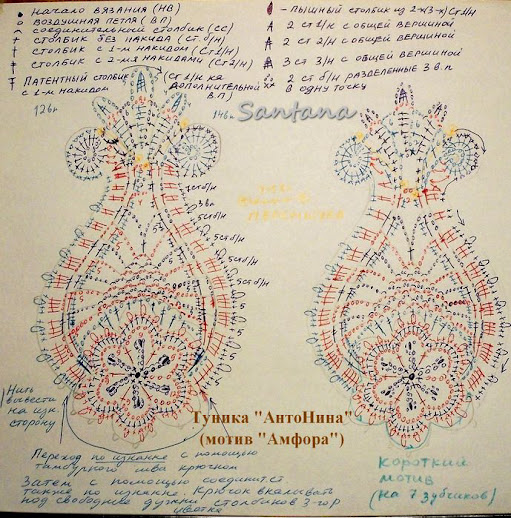 • НАЧАЛО ВЯЗАНИЯ (НВ)
о ВОЗДУШНАЯ ПЕТЛЯ (ВП)
СОЕДИНИТЕЛЬНОЙ СТОЛБИК (СС)
СТОЛБИК БЕЗ НАКИДА (СТ. б/н)
СТОЛБИК С 1-М НАКИДОМ (Ст1/н)
СТОЛБИК С 2-МЯ НАКИДАМИ (Ст2/н)
ПАТЕНТНЫЙ СТОЛБИК (Ст 1/н ка
с 1-м накидом ДОПОЛНИТЕЛЬНОЙ
В.П)
-ПЫШНЫЙ СТОЛБИК ИЗ 2-х(3-х)Ст1/н
2 СТ 1/н С ОБЩЕЙ ВЕРШИНОЙ
2 СТ 2/н С ОБЩЕЙ ВЕРШИНОЙ
3 СТ 3/н С ОБЩЕЙ ВЕРШИНОЙ
2 ст б/н РАЗДЕЛЕННЫЕ 3 в.п
В ОДНУ ТОЧКУ
126п
146п
Santana
3вп
5стб/н
5стб/н
5стб/н
5стб/н
5
5
5
5
Нить
вывести
на изн.
сторону
Туника "АнтоНина"
(мотив "Амфора")
Переход по изнанке с помощью
тамбурного шва крючком
Затем с помощью соединит.ст
также по изнанке. Крючок вкалывать
под свободные дужки столбиков 3-го р
цветка
короткий
мотив
(на 7 зубчиков)